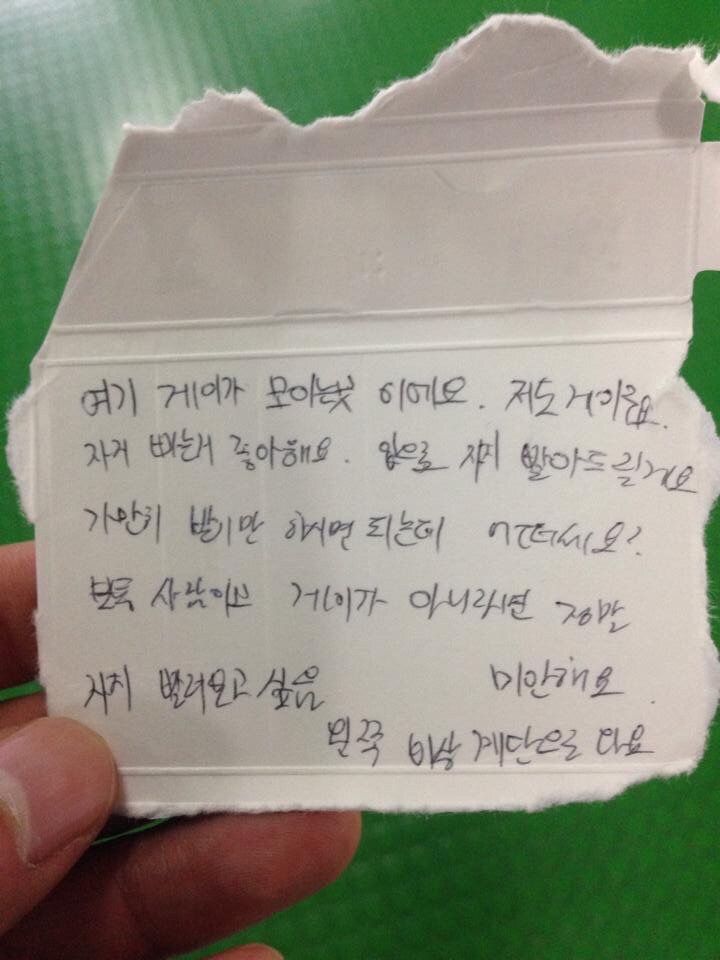 여기 게이가 모이는곳 이에요. 저도 게이구요.
자지 빠는거 좋아해요. 입으로 자지 빨아드릴게요
가만히 받기만 하시면 되는데 어떠세요?
보통 사람이고 게이가 아니라면 정말
자지 빨려보고 싶음 미안해요.
왼쪽 비상 계단으로 와요